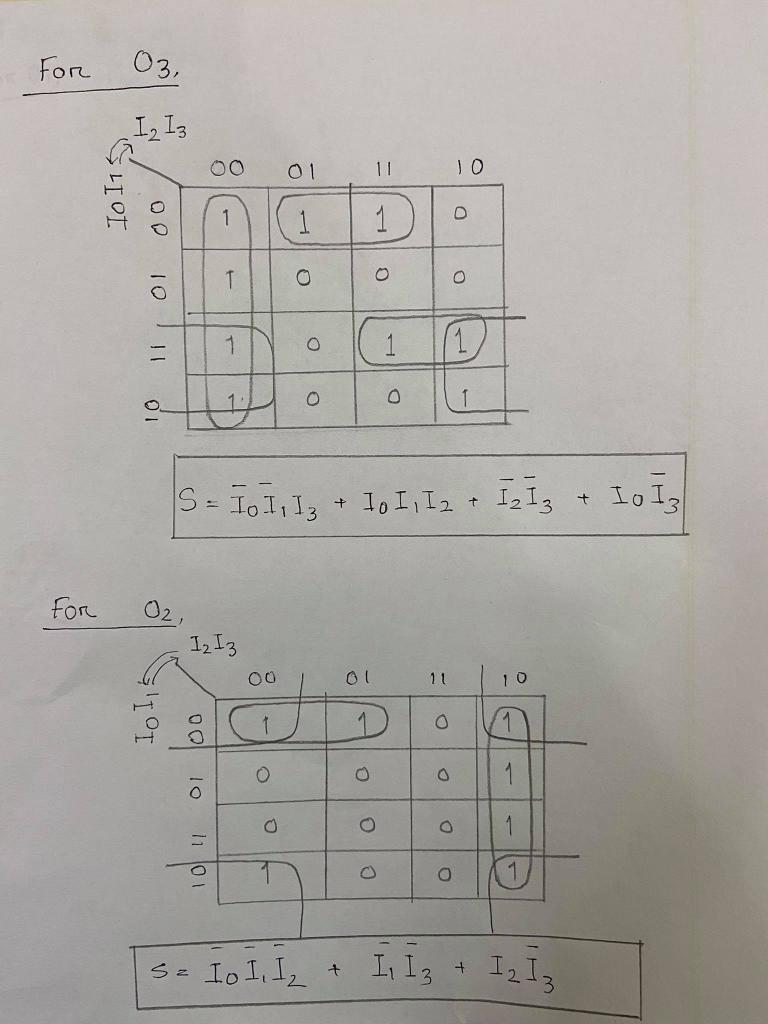 For O3,
I2 I3
I0 I1
00 01 11 10
00 1 1 1 0
01 1 0 0 0
11 1 0 1 1
10 1 0 0 1
S = I̅0 I̅1 I3 + I0 I1 I2 + I̅2 I̅3 + I0 I̅3
For O2,
I2 I3
I0 I1
00 01 11 10
00 1 1 0 1
01 0 0 0 1
11 0 0 0 1
10 1 0 0 1
S = I̅0 I̅1 I̅2 + I̅1 I̅3 + I2 I̅3